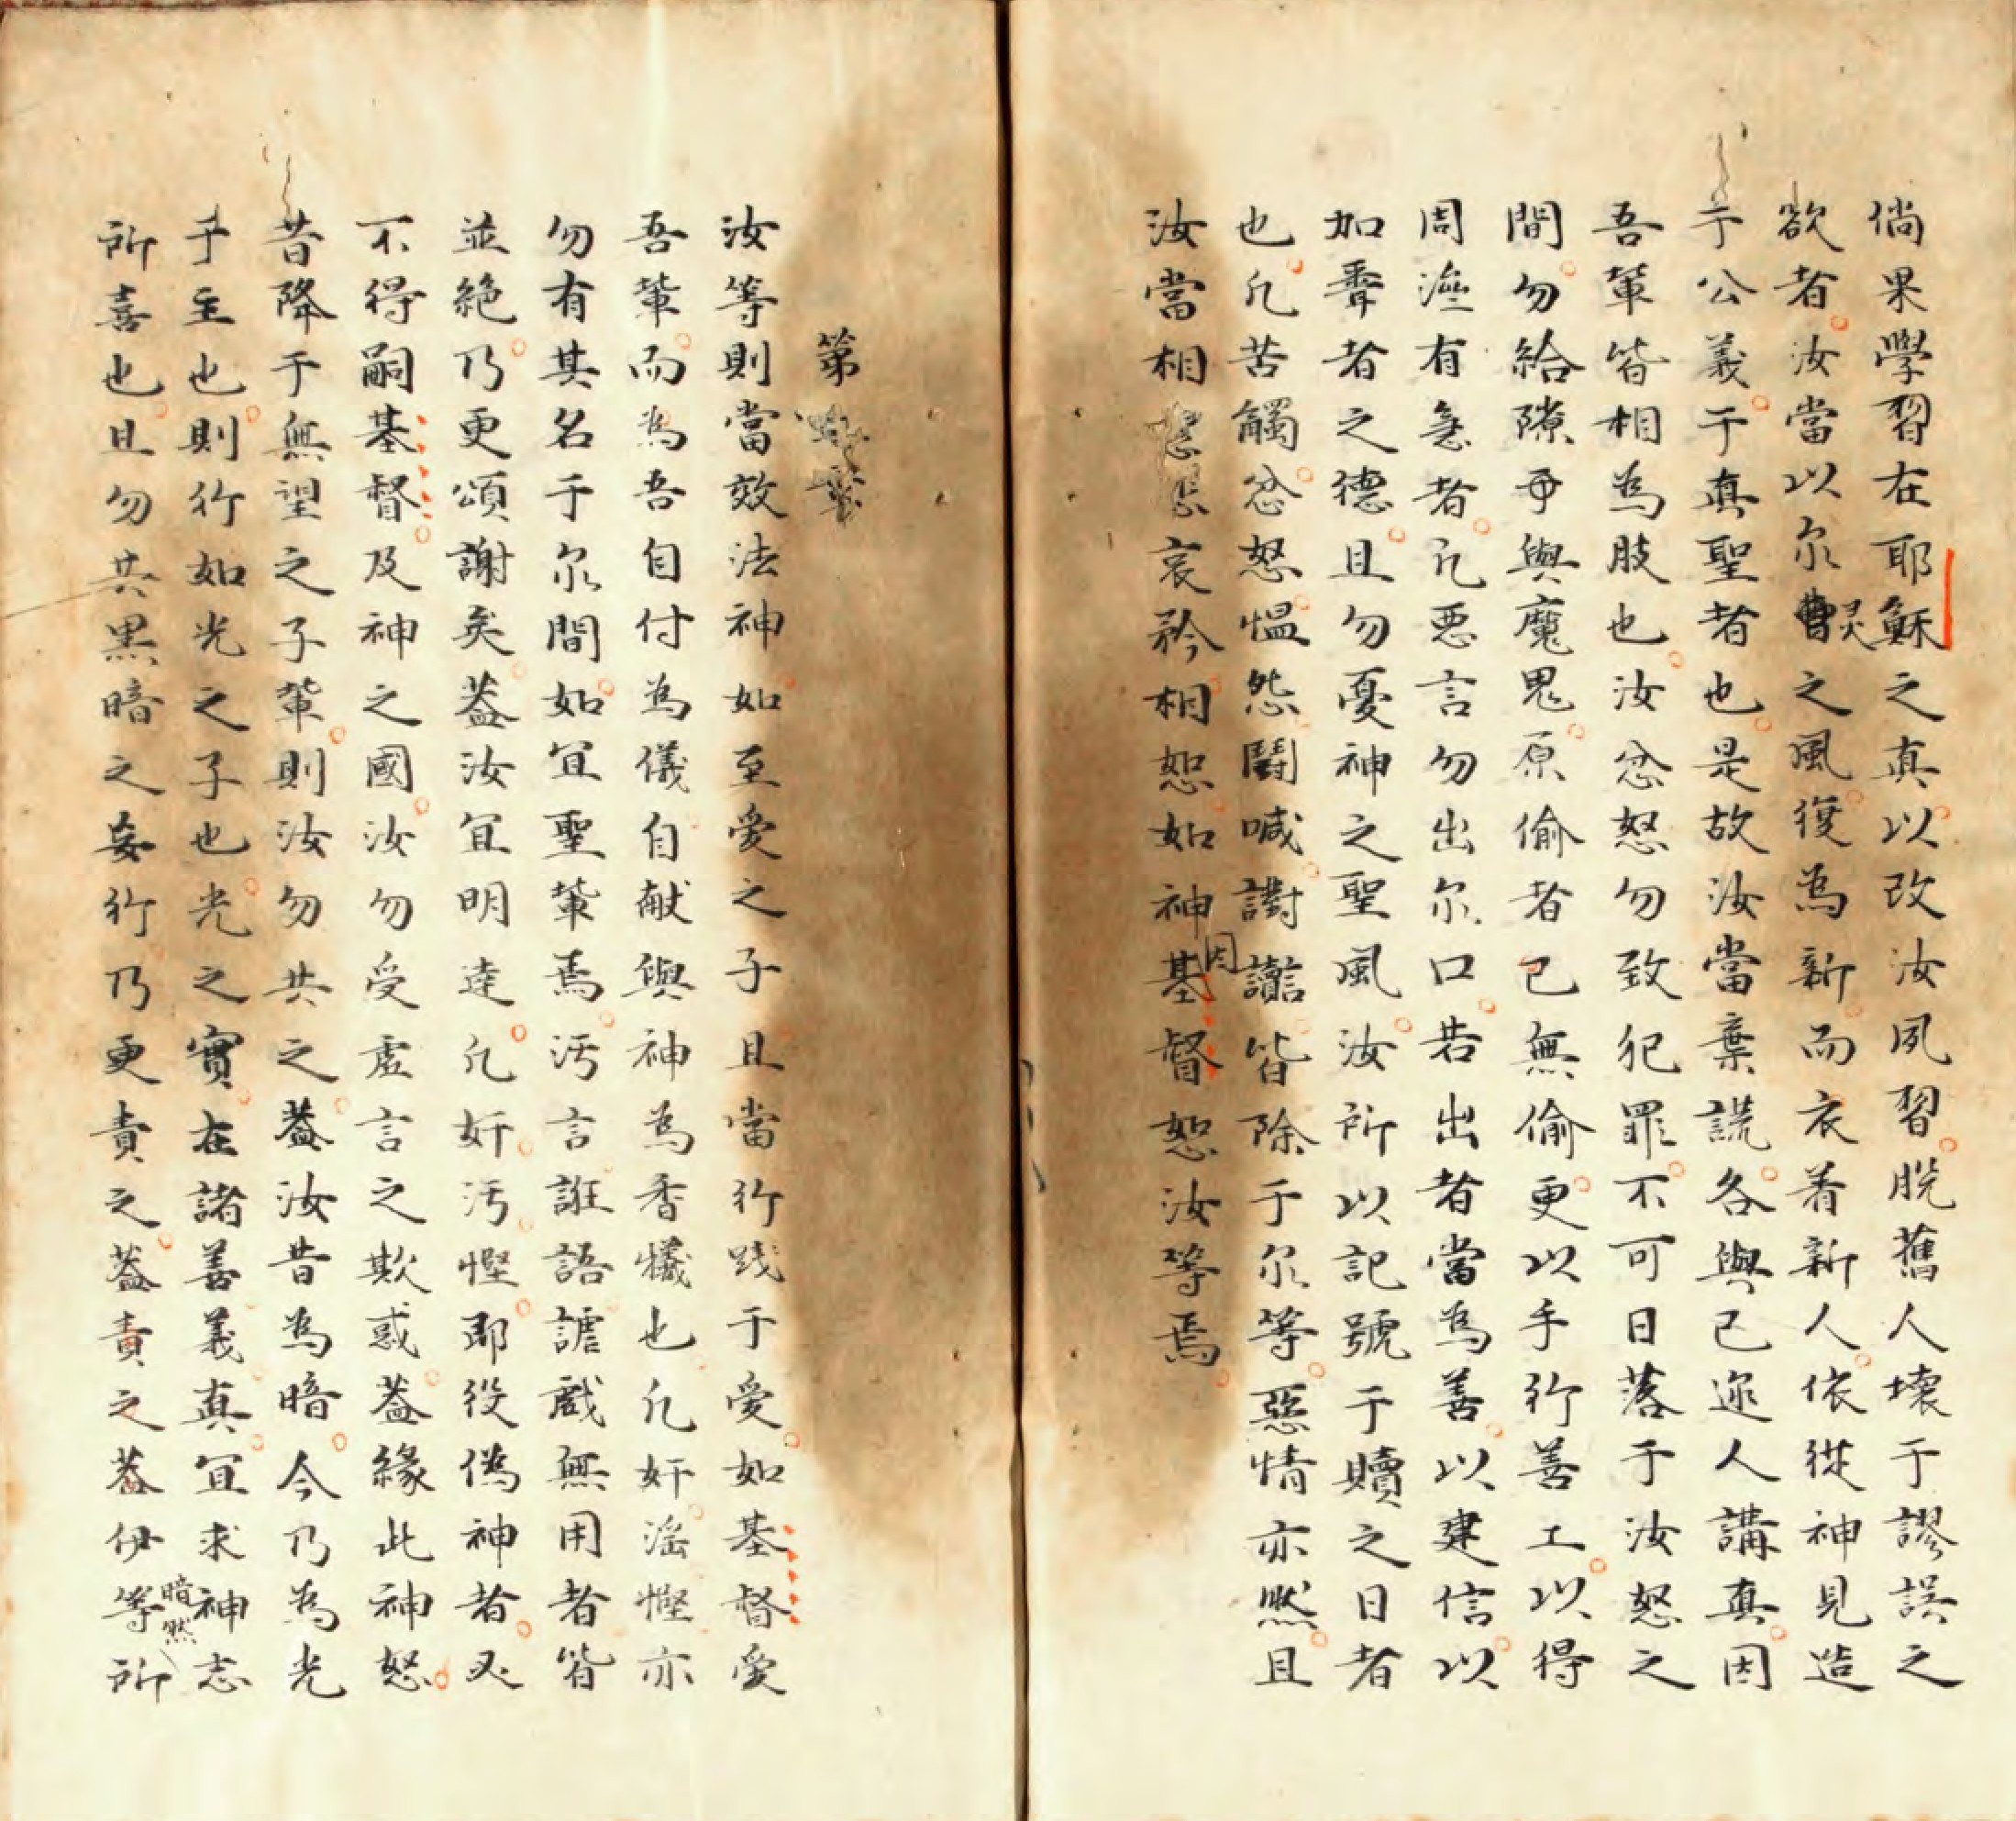 倘果學習在耶穌之真以改汝夙習脫舊人壞于謬誤之
欲者汝當以尔靈之風復為新而衣着新人依從神見造
于公義于真聖者也是故汝當棄謊各與己迩人講真因
吾輩皆相為肢也汝忿怒勿致犯罪不可日落于汝怒之
間勿給隙爭與魔鬼原偷者已無偷更以手行善工以得
周濟有急者凡悪言勿出尔口若出者當為善以建信以
加聽者之德且勿憂神之聖風汝所以記號于贖之日者
也凡苦觸忿怒愠怨鬪喊讟讒皆除于尔等惡情亦然且
汝當相哀矜相恕如神因基督恕汝等焉
第
汝等則當效法神如至愛之子且當行践于愛如基督愛
吾輩而為吾自付為儀自献與神為香犧也凡奸滛慳亦
勿有其名于尔間如宜聖輩焉污言誑語謔戲無用者皆
並絕乃更頌謝矣葢汝宜明逹凡奸污慳即役偽神者又
不得嗣基督及神之國汝勿受虛言之欺惑葢緣此神怒
昔降于無望之子輩則汝勿共之葢汝昔為暗今乃為光
于主也則行如光之子也光之實在諸善義真宜求神志
所喜也且勿共黑暗之妄行乃更責之葢責之葢伊等暗然所